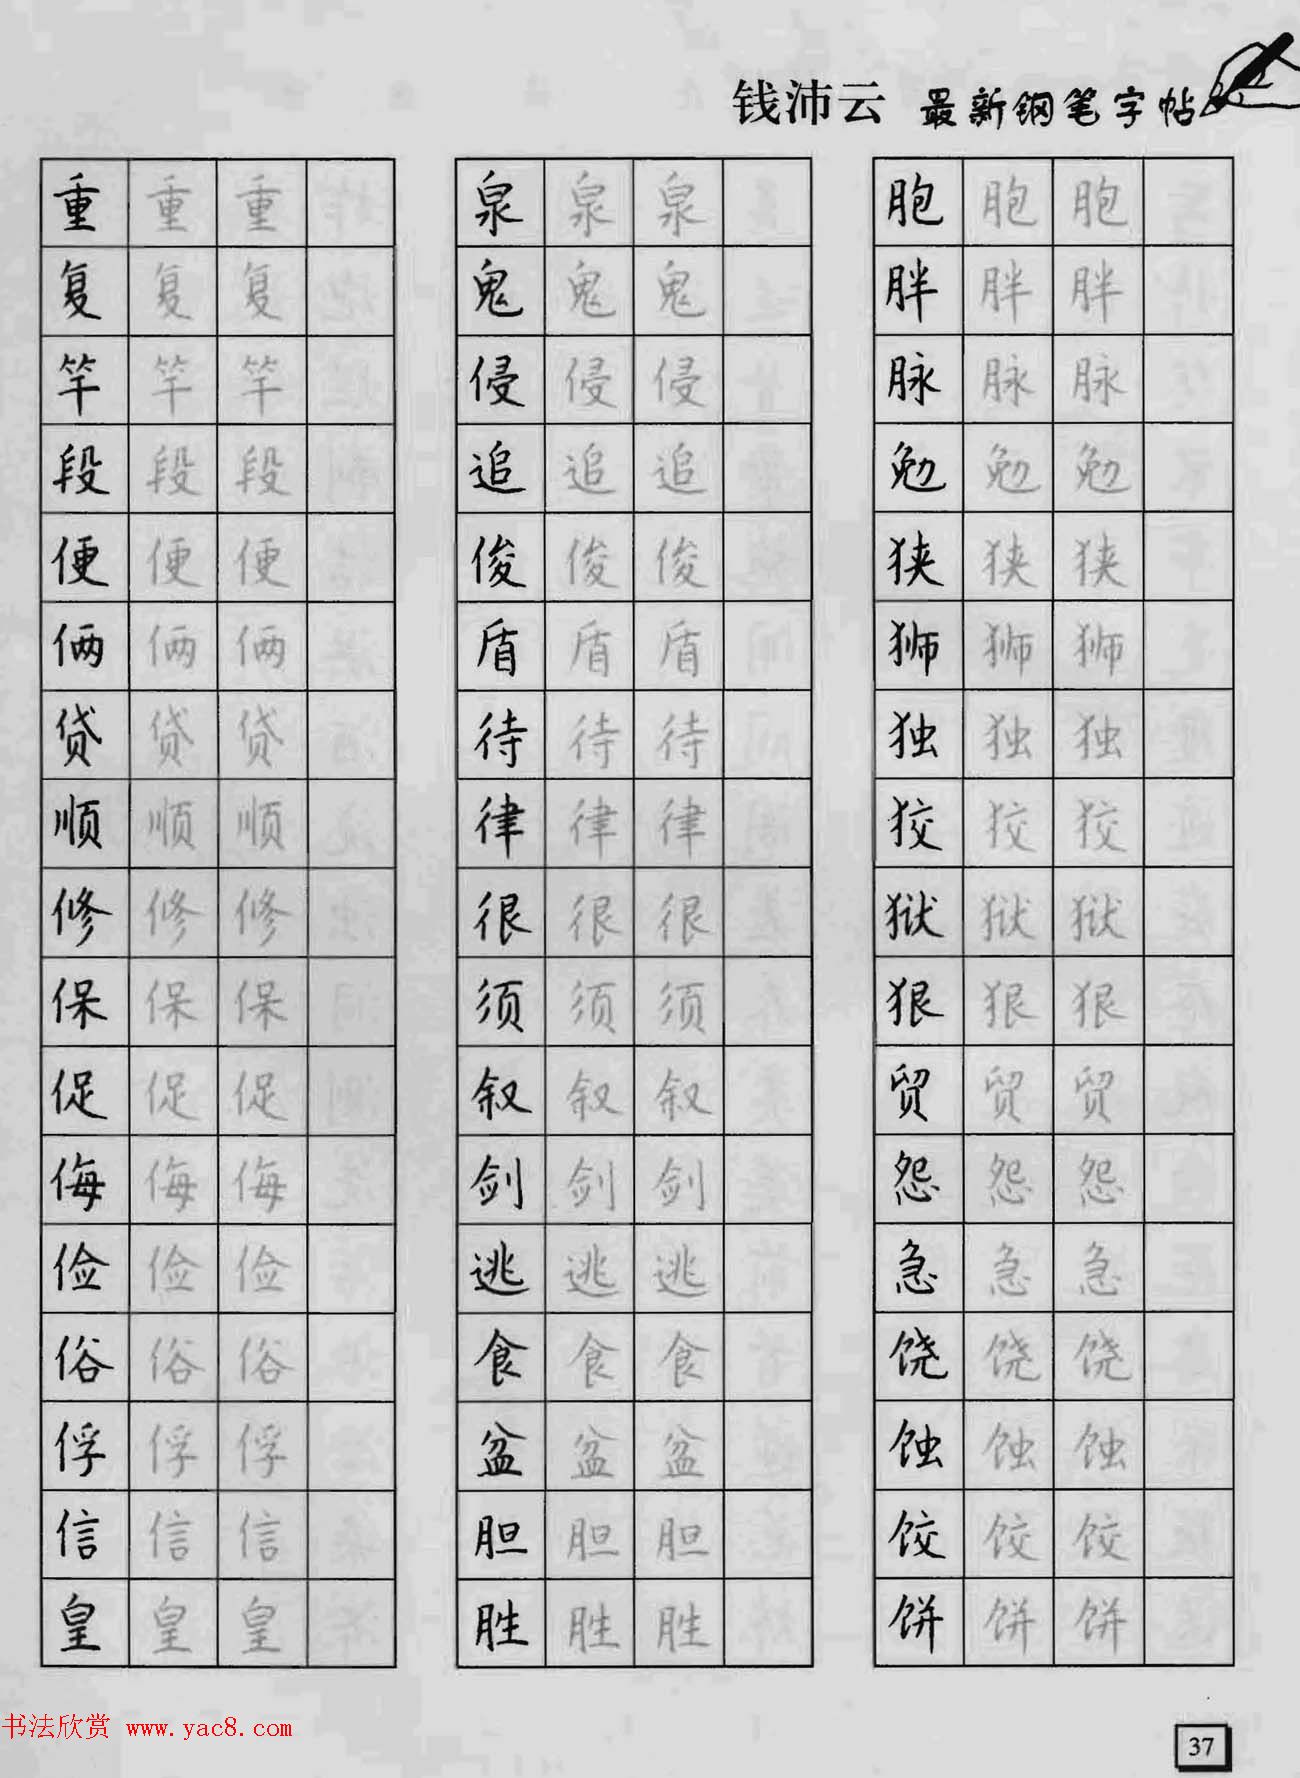 钱沛云 最新钢笔字帖
重 重 重 泉 泉 泉 胞 胞 胞
复 复 复 鬼 鬼 鬼 胖 胖 胖
竿 竿 竿 侵 侵 侵 脉 脉 脉
段 段 段 追 追 追 勉 勉 勉
便 便 便 俊 俊 俊 狭 狭 狭
俩 俩 俩 盾 盾 盾 狮 狮 狮
贷 贷 贷 待 待 待 独 独 独
顺 顺 顺 律 律 律 狡 狡 狡
修 修 修 很 很 很 狱 狱 狱
保 保 保 须 须 须 狠 狠 狠
促 促 促 叙 叙 叙 贸 贸 贸
侮 侮 侮 剑 剑 剑 怨 怨 怨
俭 俭 俭 逃 逃 逃 急 急 急
俗 俗 俗 食 食 食 饶 饶 饶
俘 俘 俘 盆 盆 盆 蚀 蚀 蚀
信 信 信 胆 胆 胆 饺 饺 饺
皇 皇 皇 胜 胜 胜 饼 饼 饼
书法欣赏 www.yac8.com
37